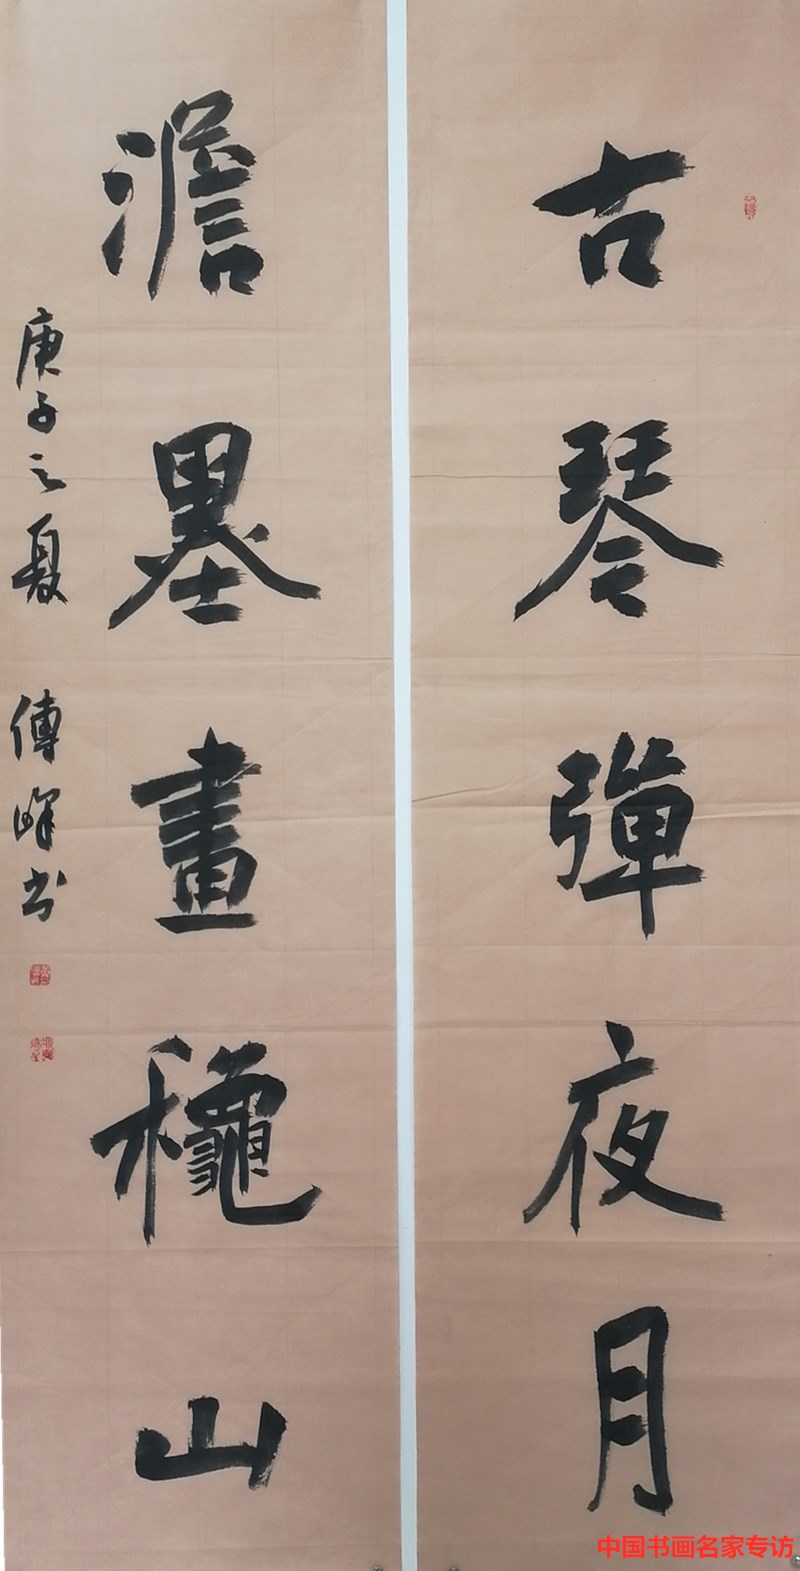 古琴彈夜月
澹墨畫龝山
庚子之夏 傅峰书
中国书画名家专访